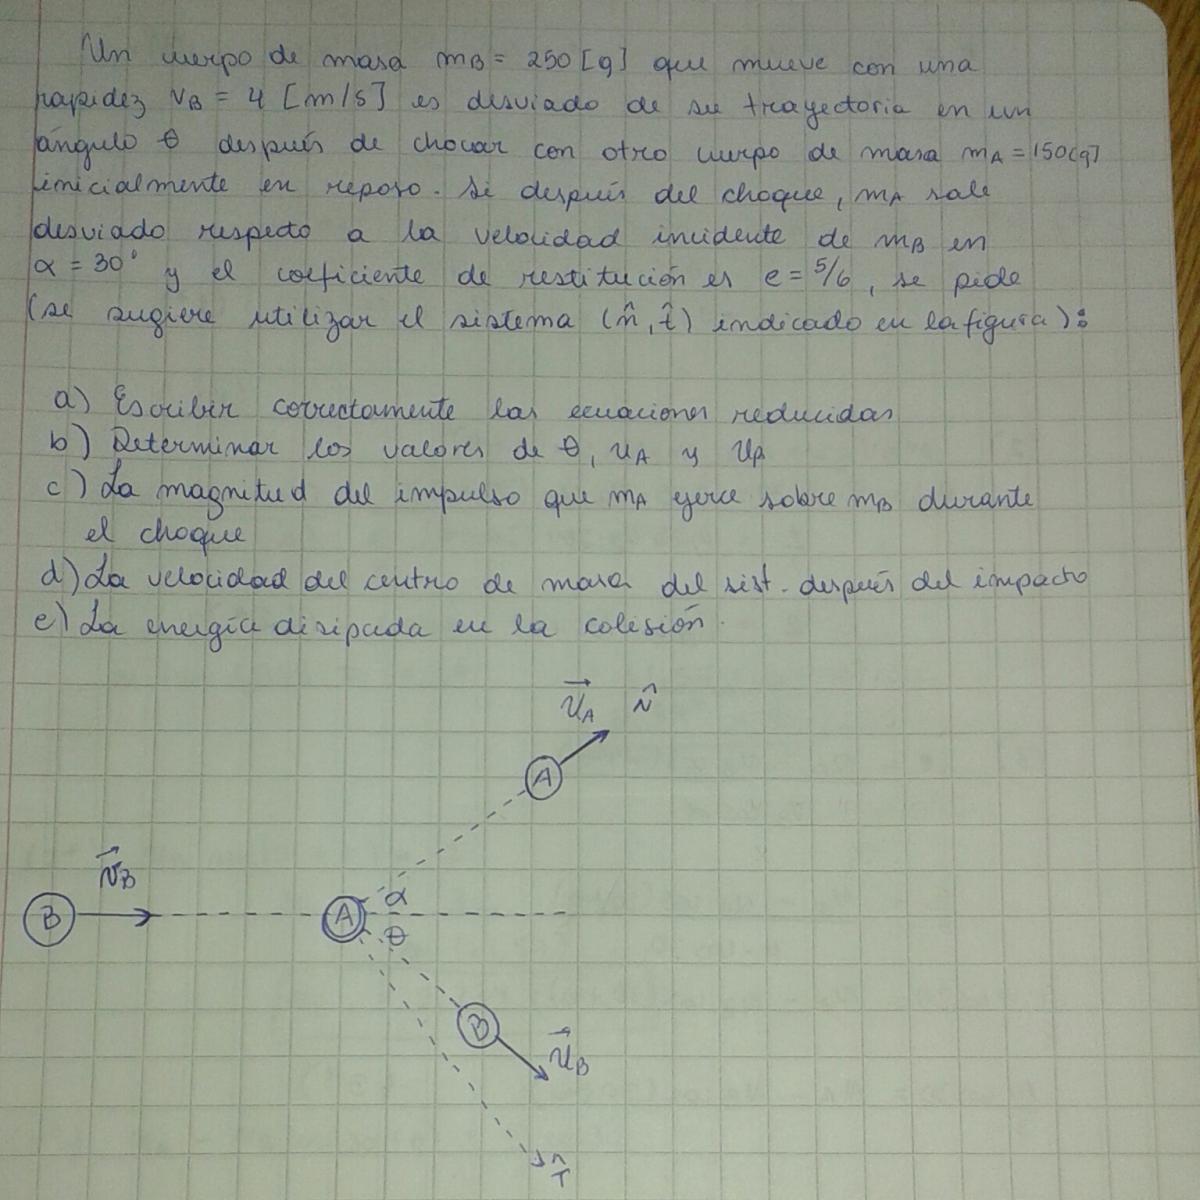 Un cuerpo de masa mB = 250 [g] que mueve con una
rapidez vB = 4 [m/s] es desviado de su trayectoria en un
ángulo θ después de chocar con otro cuerpo de masa mA = 150[g]
inicialmente en reposo. Si después del choque, mA sale
desviado respecto a la velocidad incidente de mB en
α = 30° y el coeficiente de restitución es e = 5/6, se pide
(se sugiere utilizar el sistema (n̂, t̂) indicado en la figura):
a) Escribir correctamente las ecuaciones reducidas
b) Determinar los valores de θ, uA y uB
c) La magnitud del impulso que mA ejerce sobre mB durante
el choque
d) La velocidad del centro de masa del sist. después del impacto
e) La energía disipada en la colisión.
u⃗A N̂
A
v⃗B
α
B A
θ
B
u⃗B
T̂